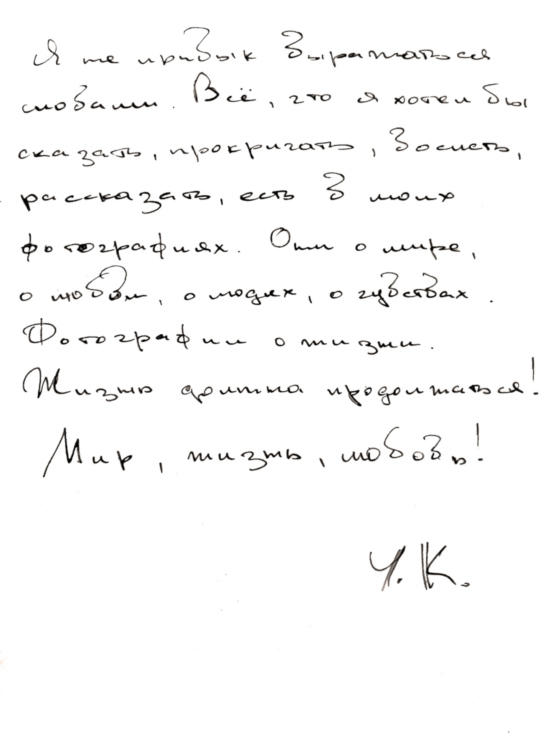 Я не привык выражаться
словами. Всё, что я хотел бы
сказать, прокричать, воспеть,
рассказать, есть в моих
фотографиях. Они о мире,
о любви, о людях, о чувствах.
Фотографии о жизни.
Жизнь должна продолжаться!
Мир, жизнь, любовь!
Ч. К.